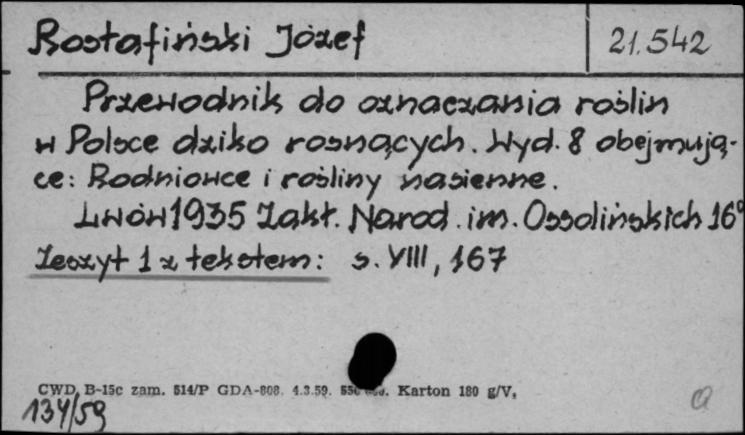 Rostafiński Józef 21.542
Przewodnik do oznaczania roślin
w Polsce dziko rosnących. Wyd. 8 obejmują-
ce: Rodniowce i rośliny nasienne.
Lwów 1935 Zakł. Narod. im. Ossolińskich 16°
Zeszyt 1 z tekstem: s. VIII, 167
CWD, B-15c zam. 514/P GDA-808. 4.3.59. Karton 180 g/V,
134/59